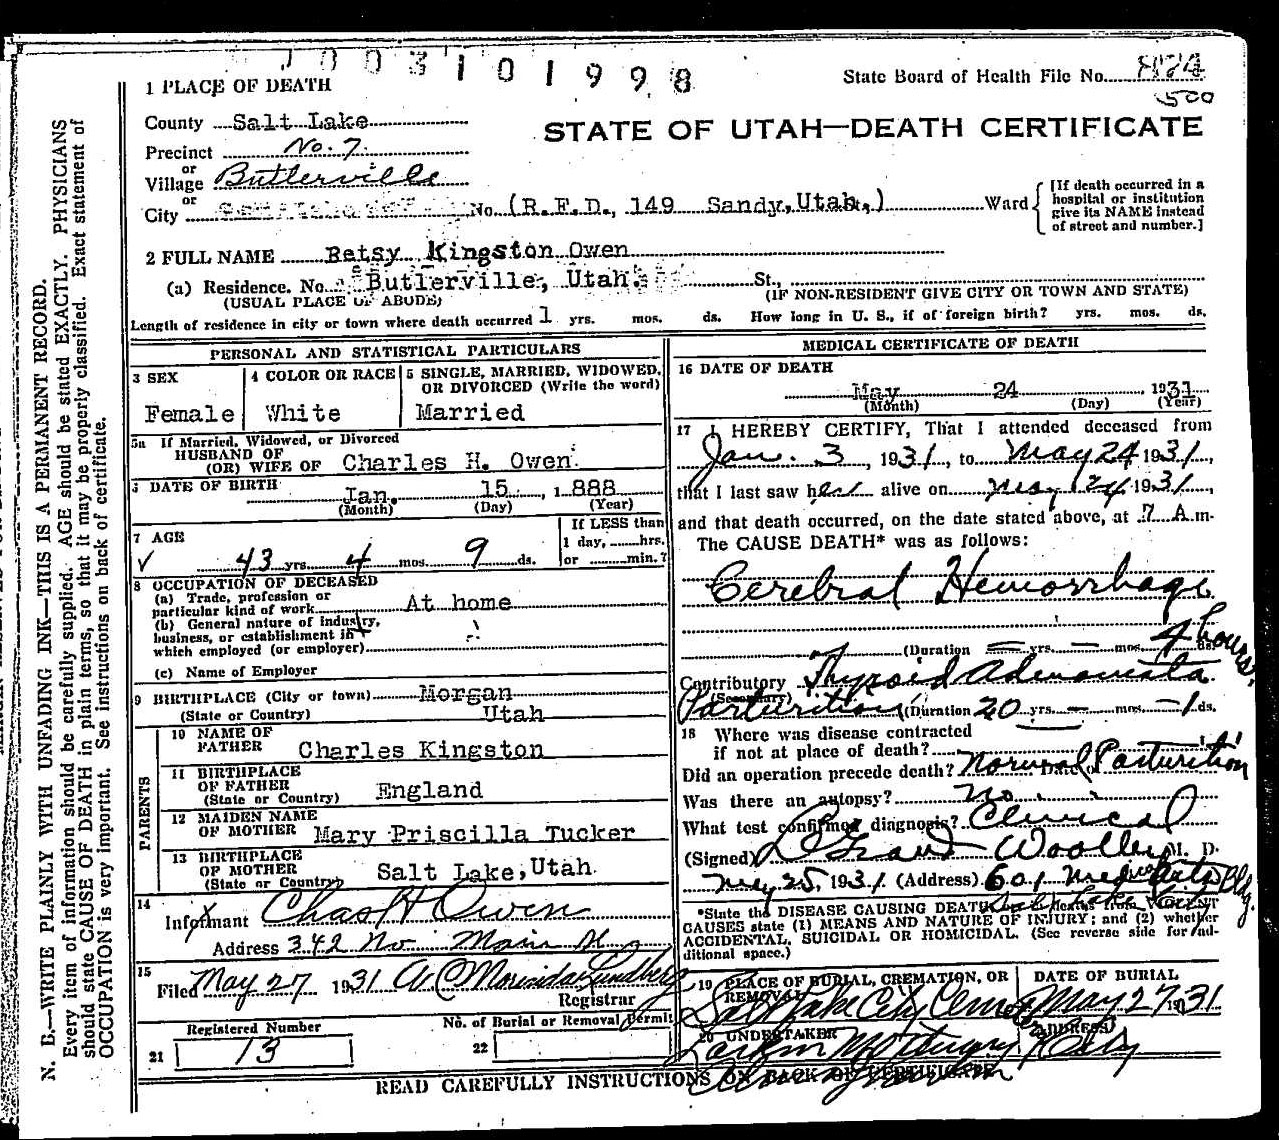 1003101998
State Board of Health File No.
500
1 PLACE OF DEATH
County Salt Lake
STATE OF UTAH—DEATH CERTIFICATE
Precinct No. 7.
or
Village Butlerville
or
City No. (R.F.D., 149 Sandy, Utah.) Ward
[If death occurred in a hospital or institution give its NAME instead of street and number.]
2 FULL NAME Betsy Kingston Owen
(a) Residence. No. Butlerville, Utah. St.,
(USUAL PLACE OF ABODE) (IF NON-RESIDENT GIVE CITY OR TOWN AND STATE)
Length of residence in city or town where death occurred 1 yrs. mos. ds. How long in U. S., if of foreign birth? yrs. mos. ds.
PERSONAL AND STATISTICAL PARTICULARS
3 SEX
Female
4 COLOR OR RACE
White
5 SINGLE, MARRIED, WIDOWED, OR DIVORCED (Write the word)
Married
5a If Married, Widowed, or Divorced
HUSBAND OF
(OR) WIFE OF Charles H. Owen.
DATE OF BIRTH
Jan. 15, 1888
(Month) (Day) (Year)
7 AGE
43 yrs. 4 mos. 9 ds.
If LESS than
1 day, hrs.
or min.?
8 OCCUPATION OF DECEASED
(a) Trade, profession or
particular kind of work At home
(b) General nature of industry,
business, or establishment in
which employed (or employer)
(c) Name of Employer
9 BIRTHPLACE (City or town) Morgan
(State or Country) Utah
PARENTS
10 NAME OF
FATHER Charles Kingston
11 BIRTHPLACE
OF FATHER England
(State or Country)
12 MAIDEN NAME
OF MOTHER Mary Priscilla Tucker
13 BIRTHPLACE
OF MOTHER Salt Lake, Utah.
(State or Country)
14
Informant Chas H Owen
Address 342 No. Main St
15
Filed May 27 1931
Registrar
Registered Number
21 13
No. of Burial or Removal Permit
22
MEDICAL CERTIFICATE OF DEATH
16 DATE OF DEATH
May 24 1931
(Month) (Day) (Year)
17 I HEREBY CERTIFY, That I attended deceased from
Jan. 3, 1931, to May 24 1931,
that I last saw her alive on May 24 1931,
and that death occurred, on the date stated above, at 7 A m.
The CAUSE DEATH* was as follows:
Cerebral Hemorrhage
(Duration yrs. mos. 4 hours. ds.
Contributory Thyroid Adenomata
(Secondary)
Parturition (Duration 20 yrs. mos. 1 ds.
18 Where was disease contracted
if not at place of death?
Did an operation precede death? Normal Parturition Date of
Was there an autopsy? No.
What test confirmed diagnosis? Clinical
(Signed) LeGrand Woolley M. D.
May 25, 1931. (Address) 601 Med Arts Bldg.
*State the DISEASE CAUSING DEATH, VIOLENT
CAUSES state (1) MEANS AND NATURE OF INJURY; and (2) whether
ACCIDENTAL, SUICIDAL OR HOMICIDAL. (See reverse side for additional space.)
19 PLACE OF BURIAL, CREMATION, OR REMOVAL
Salt Lake City Cemetery
DATE OF BURIAL
May 27 1931
20 UNDERTAKER
(ADDRESS)
READ CAREFULLY INSTRUCTIONS ON BACK OF CERTIFICATE
N. B.—WRITE PLAINLY WITH UNFADING INK—THIS IS A PERMANENT RECORD.
Every item of information should be carefully supplied. AGE should be stated EXACTLY. PHYSICIANS
should state CAUSE OF DEATH in plain terms, so that it may be properly classified. Exact statement of
OCCUPATION is very important. See instructions on back of certificate.